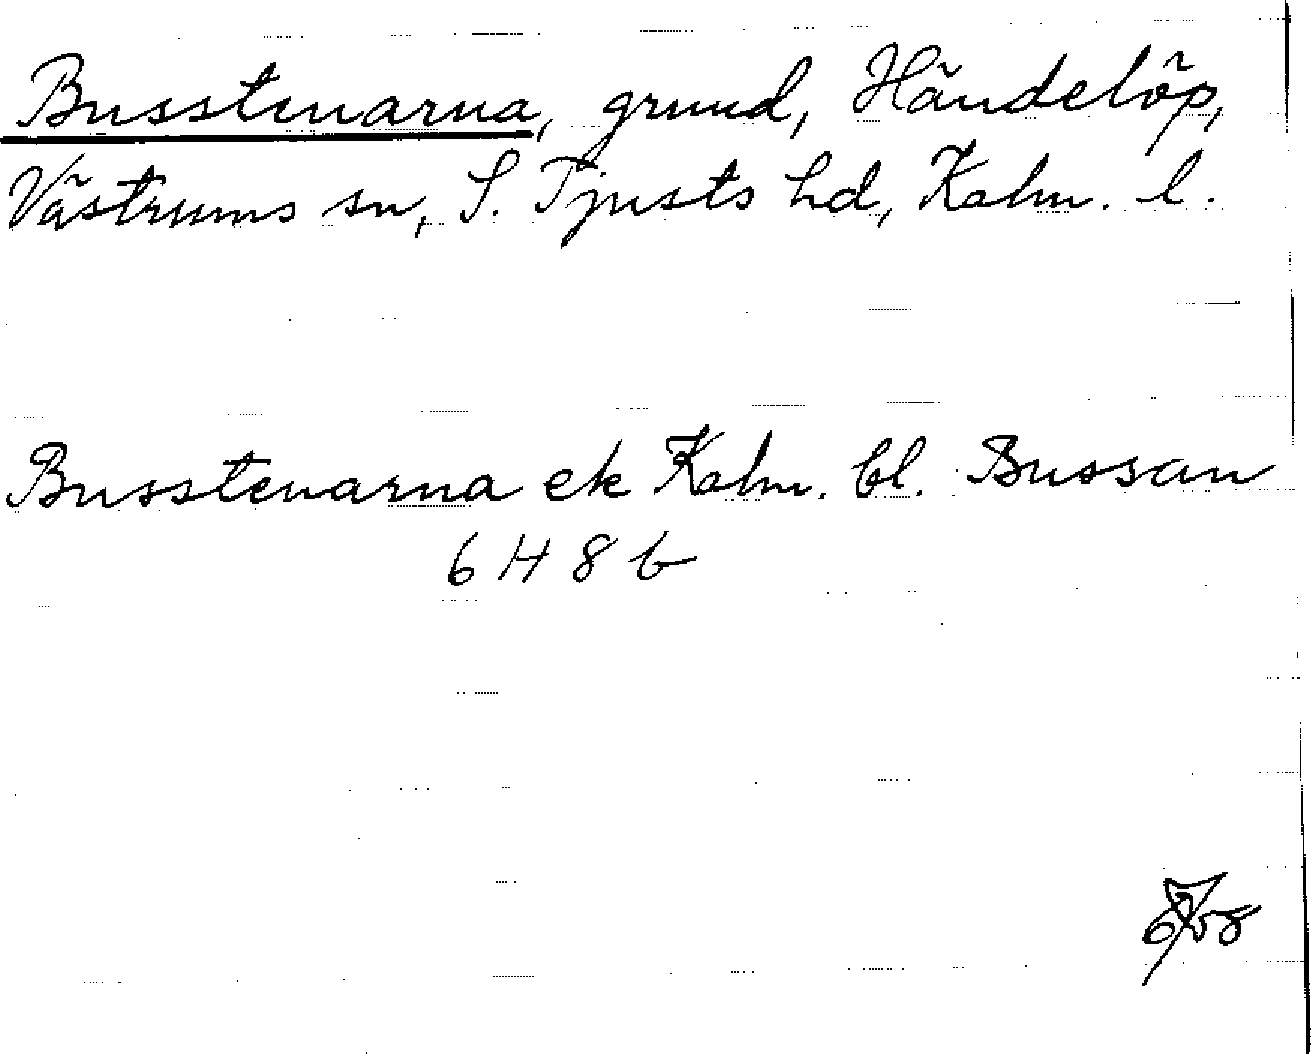 Busstenarna, grund, Händelöp,
Västrums sn, S. Tjusts hd, Kalm. l.
Busstenarna ek Kalm. bl. Bussan
6 H 8 b